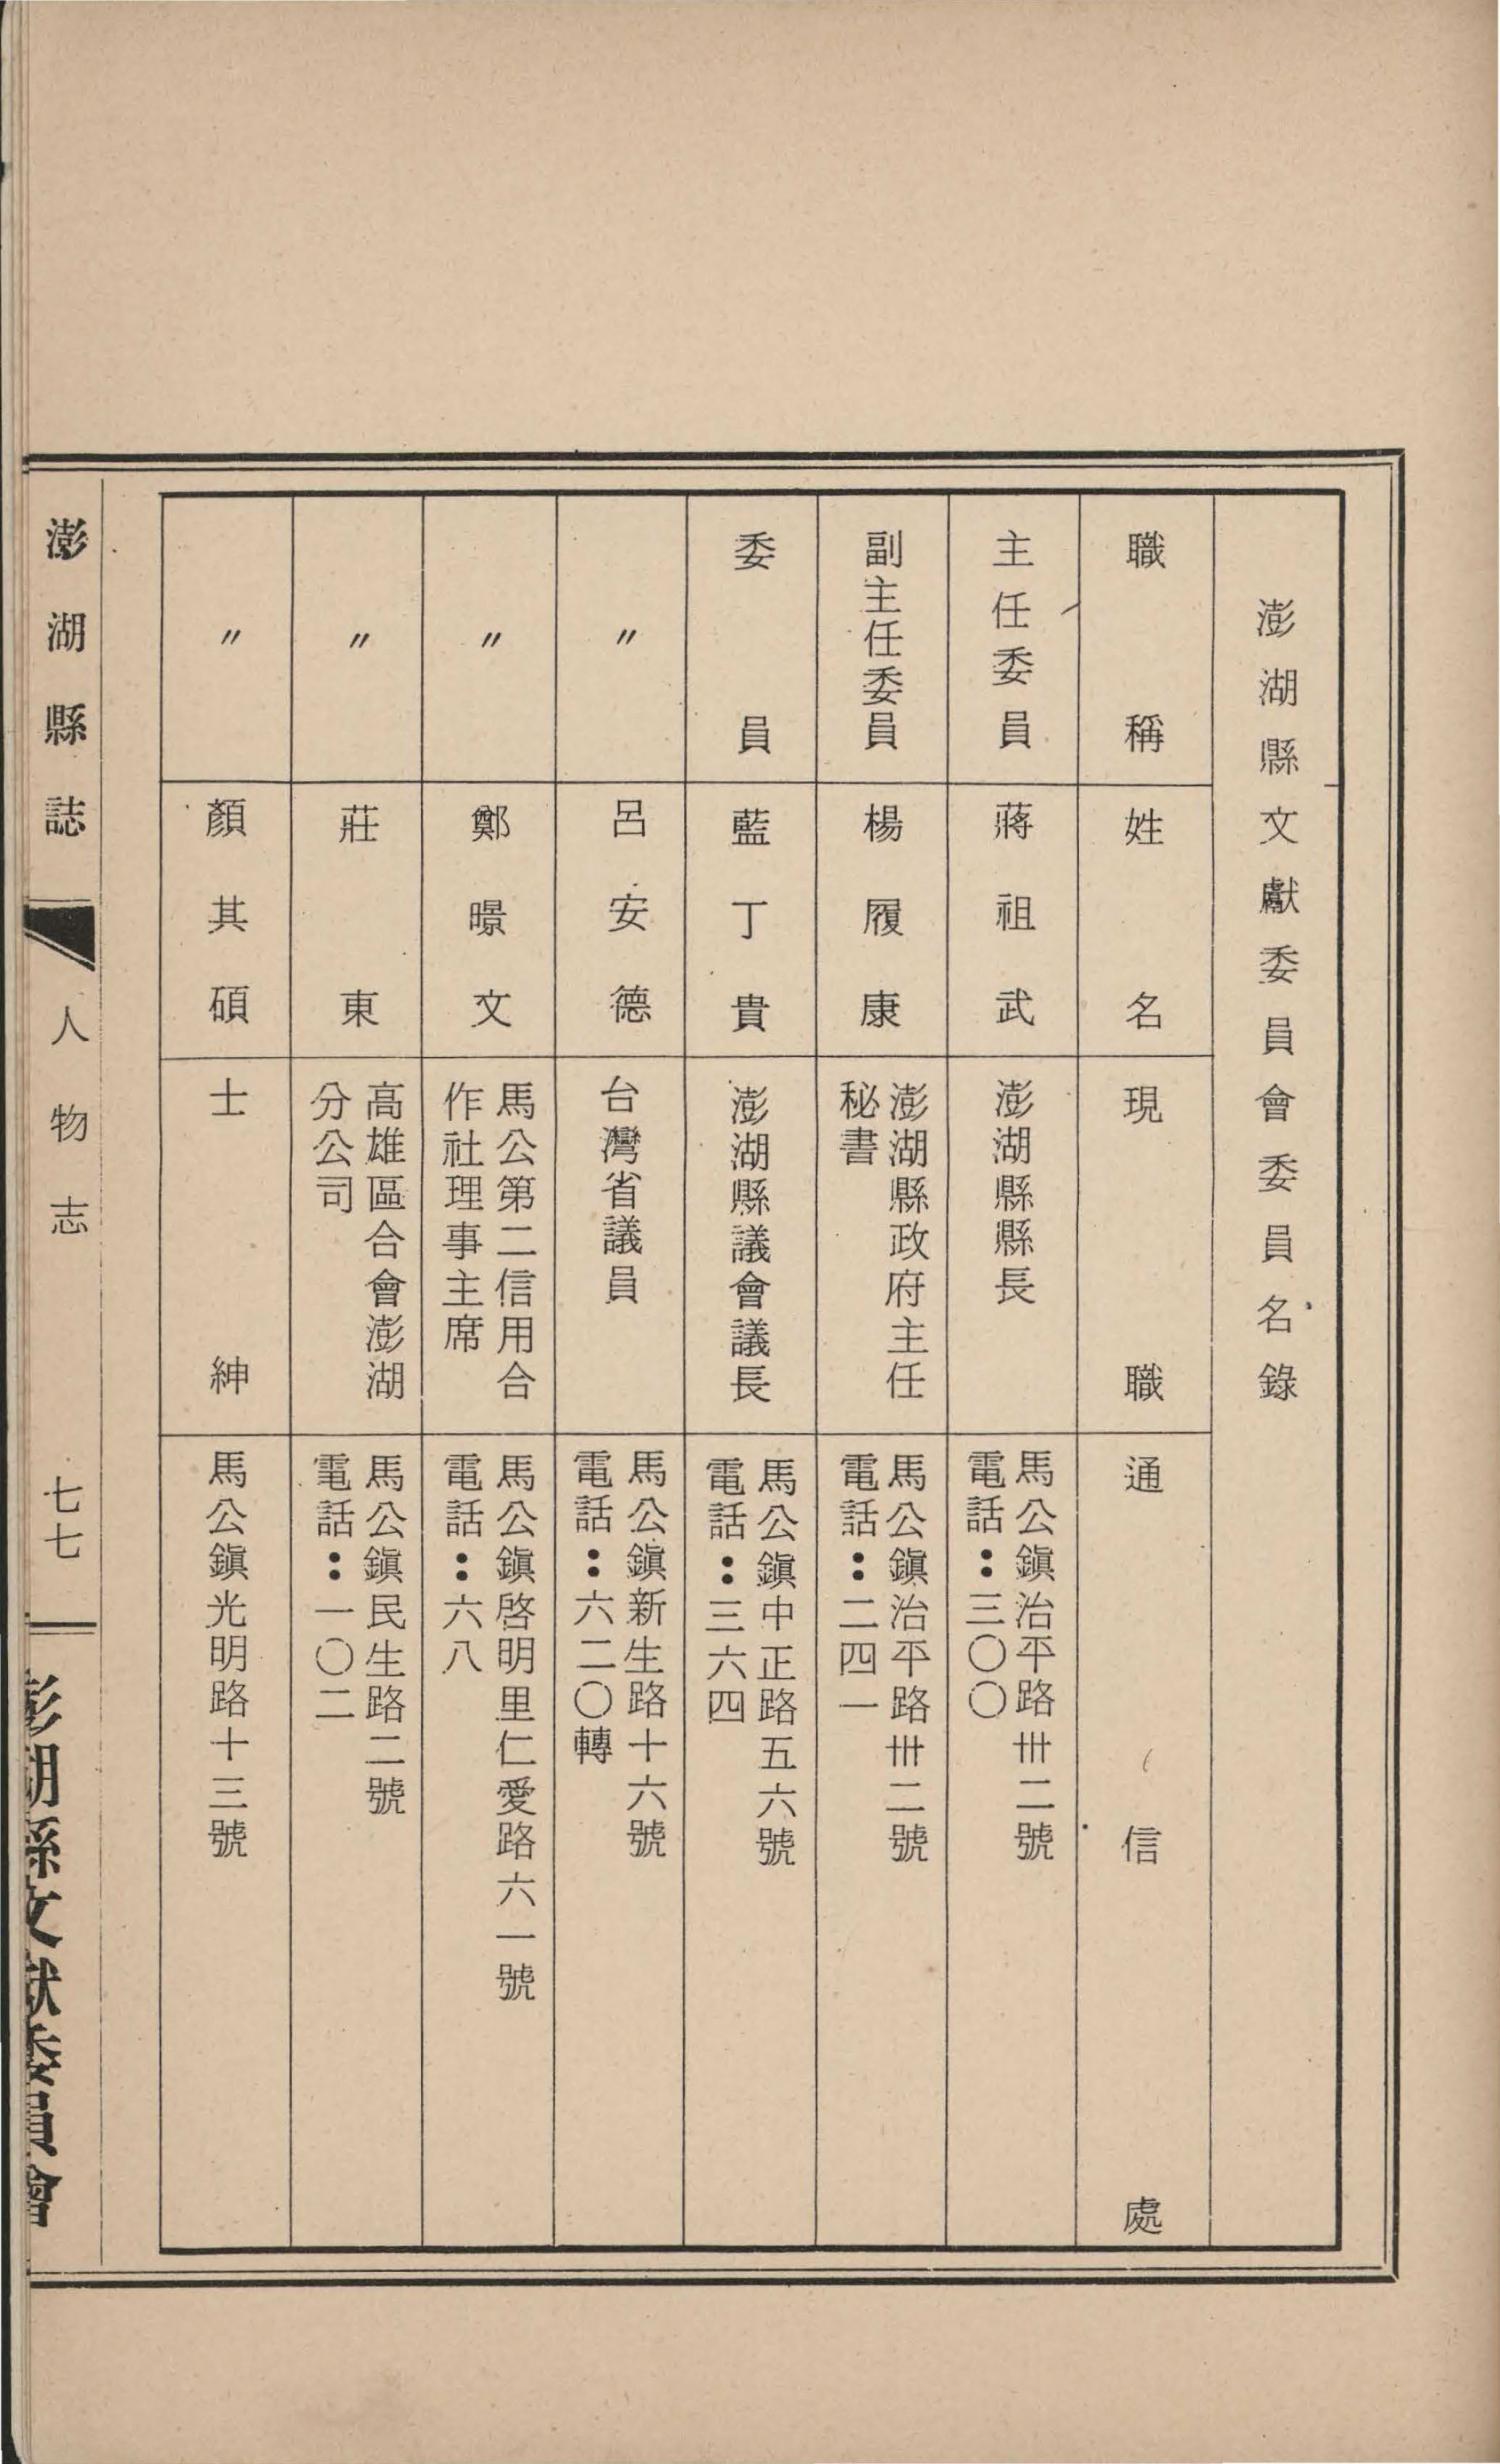 澎湖縣文獻委員會委員名錄
職稱
姓名
現職
通信處
主任委員
蔣祖武
澎湖縣縣長
馬公鎭治平路卅二號
電話：三〇〇
副主任委員
楊履康
澎湖縣政府主任
秘書
馬公鎭治平路卅二號
電話：二四一
委員
藍丁貴
澎湖縣議會議長
馬公鎭中正路五六號
電話：三六四
〃
呂安德
台灣省議員
馬公鎭新生路十六號
電話：六二〇轉
〃
鄭暻文
馬公第二信用合
作社理事主席
馬公鎭啓明里仁愛路六一號
電話：六八
〃
莊東
高雄區合會澎湖
分公司
馬公鎭民生路二號
電話：一〇二
〃
顏其碩
士紳
馬公鎭光明路十三號
澎湖縣誌
人物志
七七
澎湖縣文獻委員會